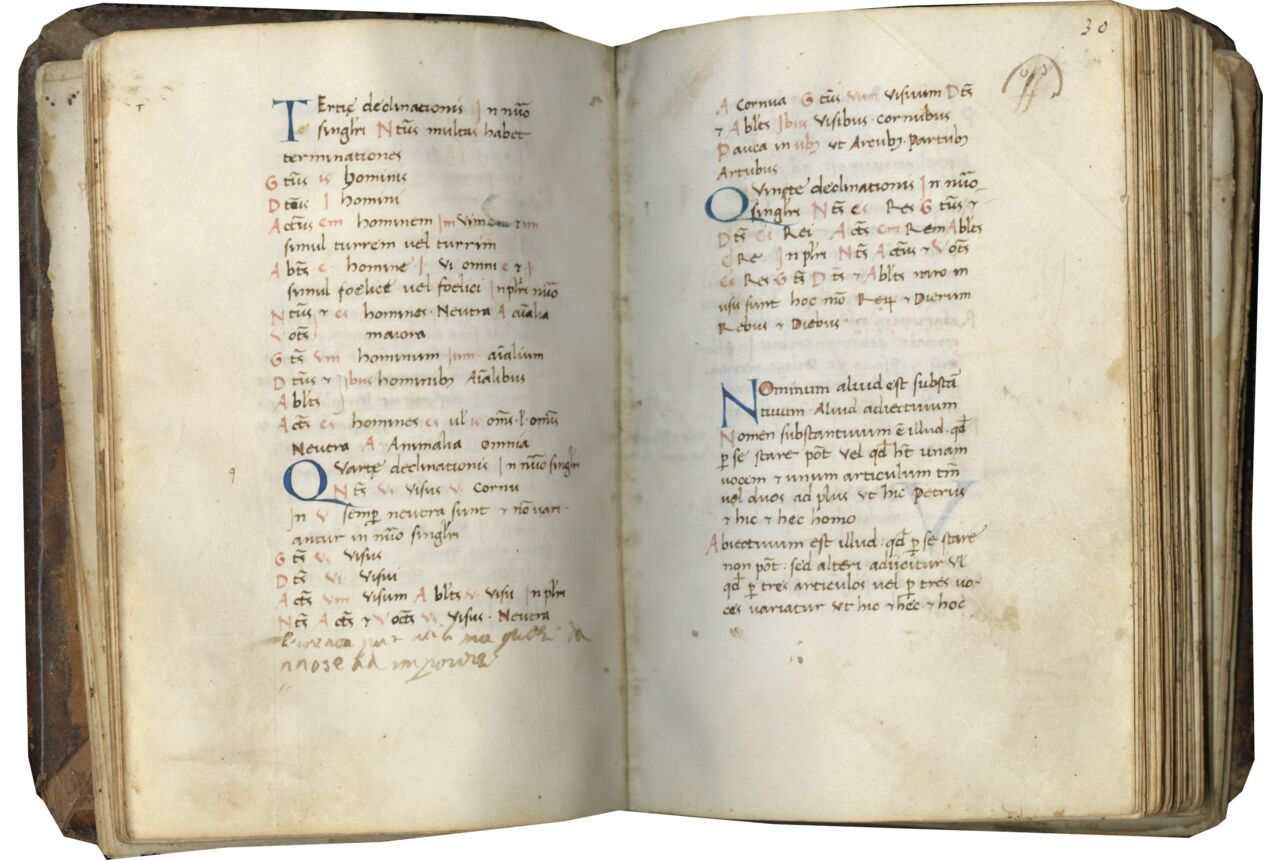 Tertię declinationis In nūo
singlri Ntūs multas habet
terminationes
Gtūs is hominis
Dtūs I homini
Actūs em hominem Im vim em im
simul turrem vel turrim
Abtś e homine I vi omni e ⁊ i
simul foelice vel foelici Inplri nūo
Ntūs ⁊ es homines · Neutra A aīalia
Votś maiora
Gtś vm hominum ium aīalium
Dtūs ⁊ ibus hominibꝫ Aīalibus
Ablts
Actś es homines es vl' is omēs · l · omīs
Neutra · A · Animalia omnia
Quartę declinationis In nūo singlri
Ntś Vs visus V Cornu
In V semꝑ neutra sunt ⁊ nō vari-
antur in nūo singlri
Gtś Vs visus
Dtś Vi visui
Actś vm visum Ablts v visu Inplri
Ntś Actś ⁊ Voctś Vs visus · Neutra
30
A Cornua Gtūs vum visuum Dtś
⁊ Ablts Ibus visibus · cornubus
Pauca in ubꝫ ut Arcubꝫ · Partubꝫ
Artubus
Quintę declinationis In nūo
singlri Ntś es Res Gtūs ⁊
Dtś ei Rei Actś em Rem Ablts
e Re Inplri Ntś Actūs ⁊ Votś
es Res Gtś Dtś ⁊ Ablts raro in
usu sunt hoc mō Reꝝ ⁊ Dierum
Rebus ⁊ Diebus
Nominum aliud est substā
tiuum · Aliud adiectiuum
Nomen substantiuum ē illud · qd
ꝑ se stare pōt vel qd ht unam
vocem ⁊ unum articulum tm̄
vel duos ad plus ut hic Petrus
⁊ hic ⁊ hec homo
Abiectiuum est illud : qd ꝑ se stare
non pōt : sed alteri adijcitur vl
qd ꝑ tres articulos vel ꝑ tres uo-
ces variatur ut hic ⁊ hęc ⁊ hoc